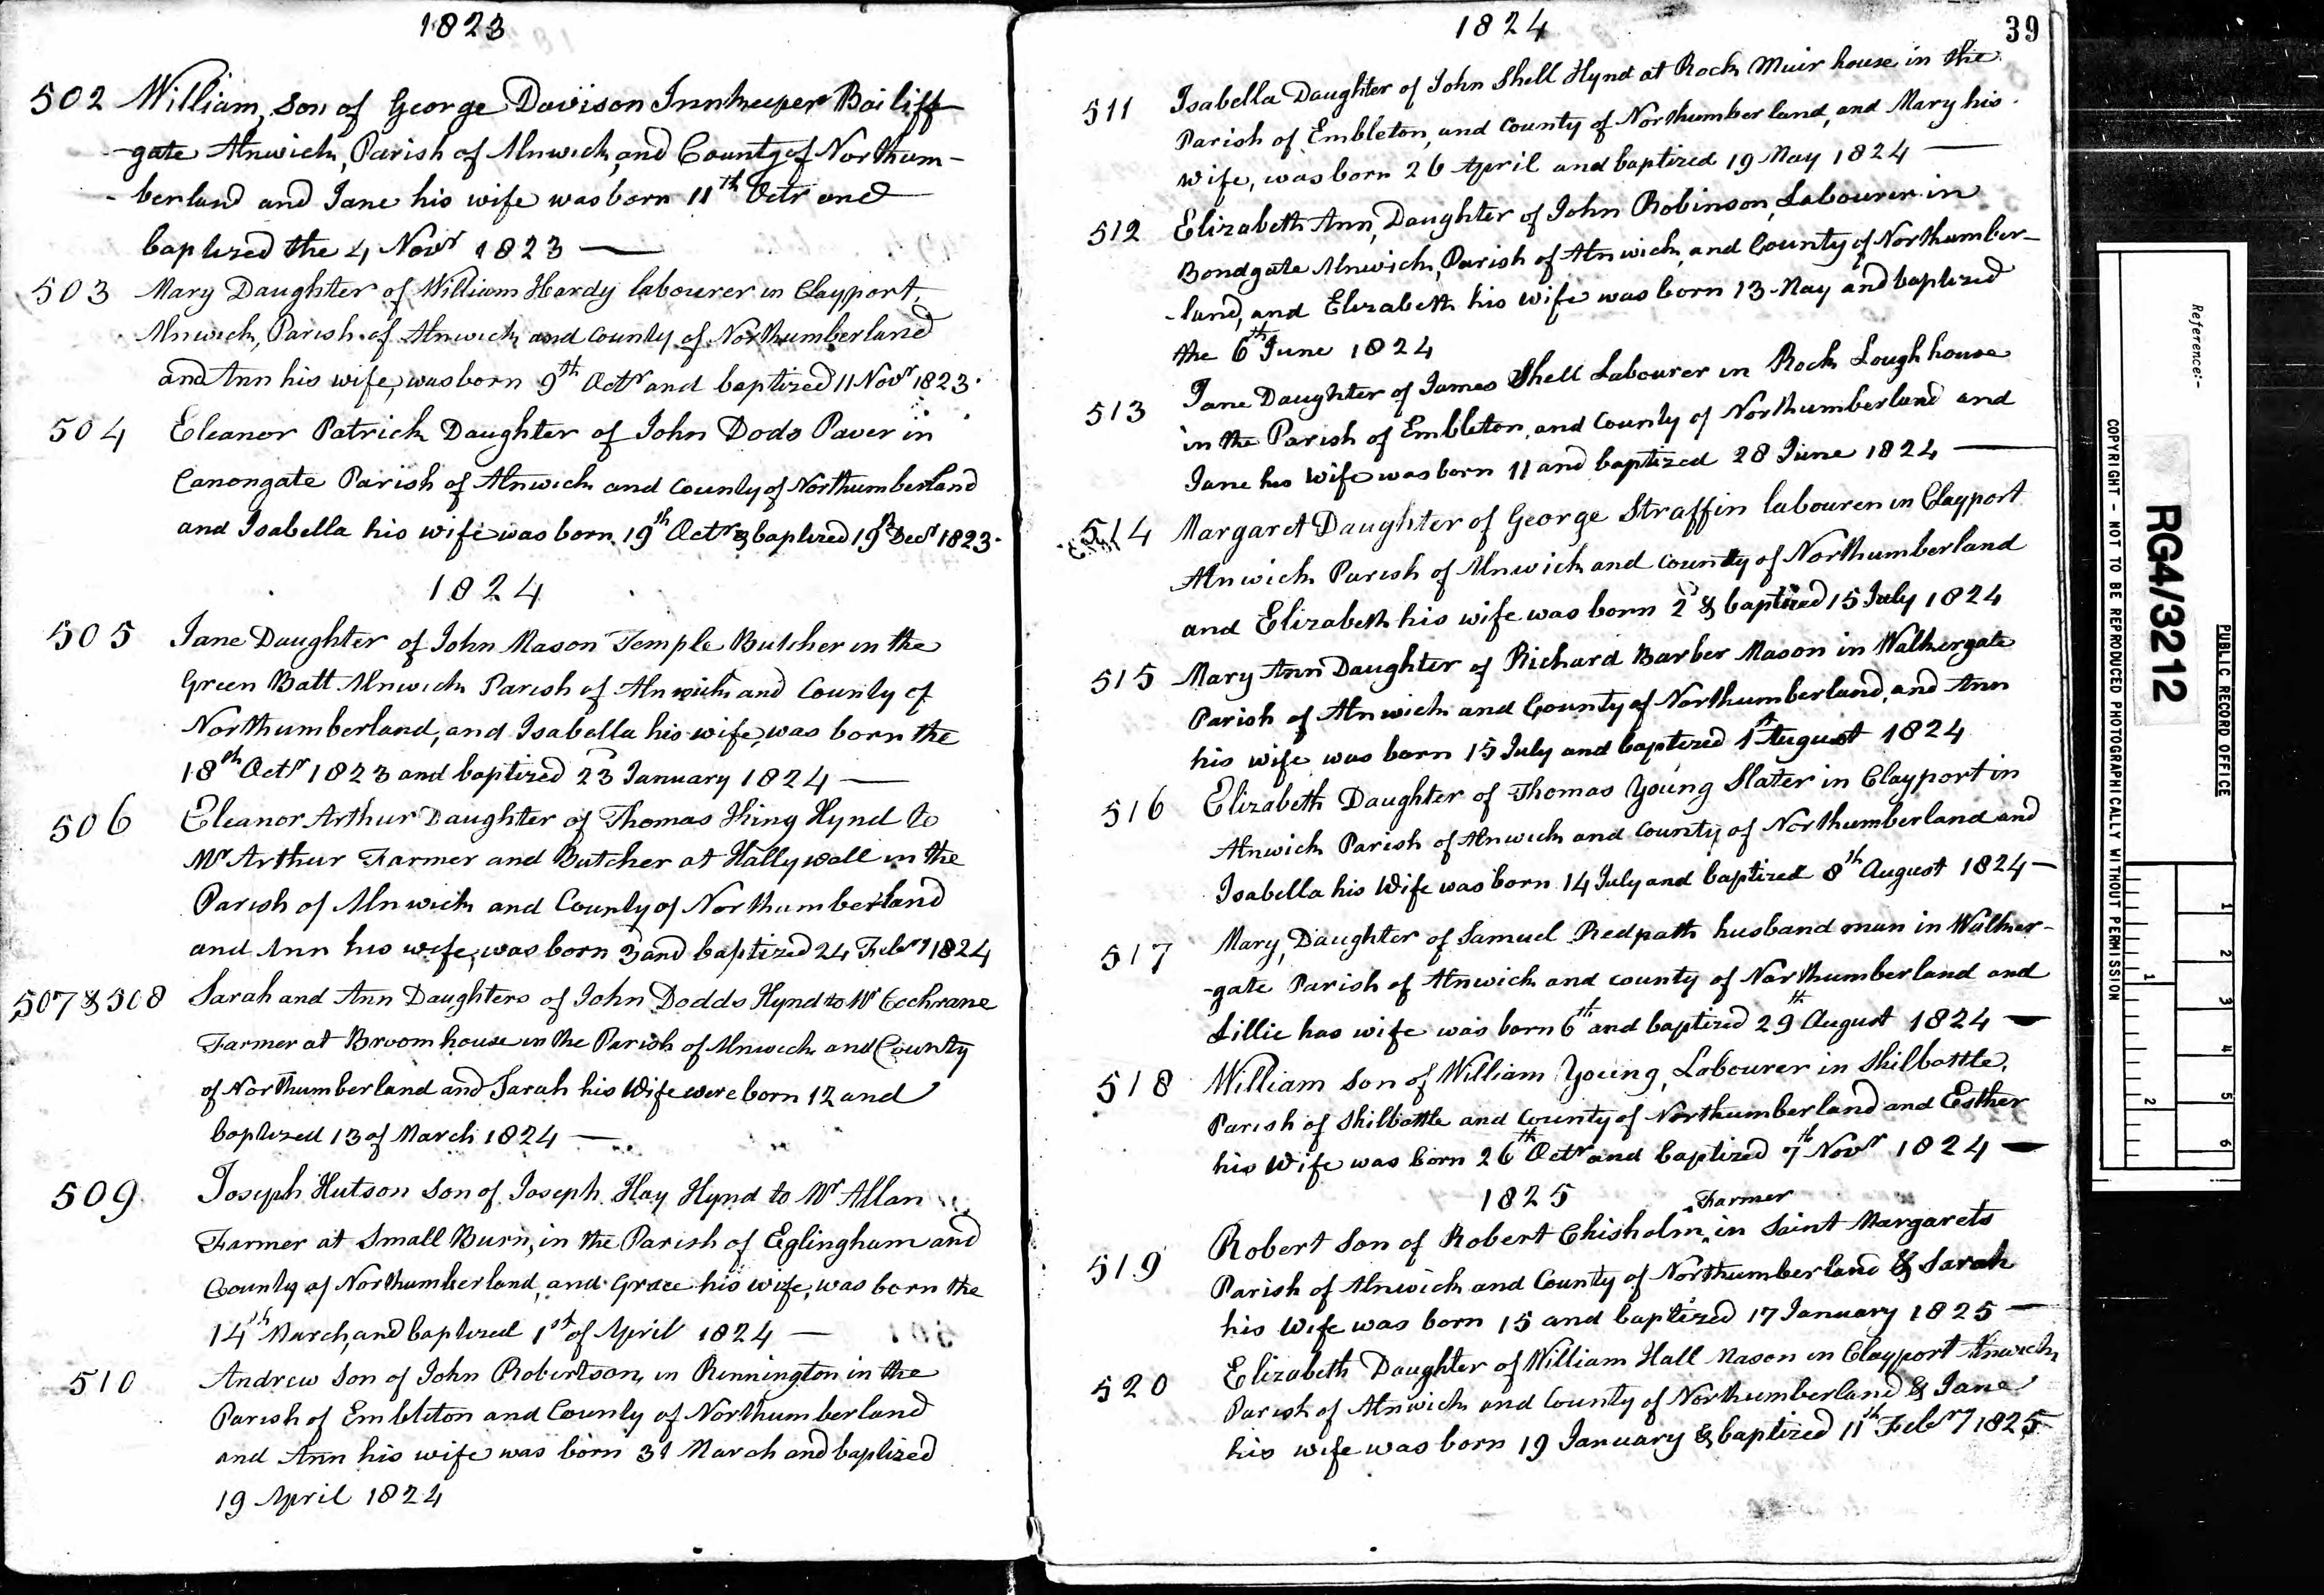 1823
502 William, Son of George Davison Innkeeper Bailiff
-gate Alnwick, Parish of Alnwick, and County of Northum-
-berland and Jane his wife was born 11th Octr and
baptized the 4 Novr 1823 —
503 Mary Daughter of William Hardy labourer in Clayport,
Alnwick, Parish of Alnwick and County of Northumberland
and Ann his wife, was born 9th Octr and baptized 11 Novr 1823.
504 Eleanor Patrick Daughter of John Dods Paver in
Canongate Parish of Alnwick and County of Northumberland
and Isabella his wife was born 19th Octr & baptized 19th Decr 1823.
1824
505 Jane Daughter of John Mason Temple Butcher in the
Green Batt Alnwick Parish of Alnwick and County of
Northumberland, and Isabella his wife, was born the
18th Octr 1823 and baptized 23 January 1824 —
506 Eleanor Arthur Daughter of Thomas King Hynd to
Mr Arthur Farmer and Butcher at Hallywall in the
Parish of Alnwick and County of Northumberland
and Ann his wife, was born 3 and baptized 24 Febry 1824
507 & 508 Sarah and Ann Daughters of John Dodds Hynd to Mr Cochrane
Farmer at Broomhouse in the Parish of Alnwick and County
of Northumberland and Sarah his Wife were born 12 and
baptized 13 of March 1824 —
509 Joseph Hutson Son of Joseph Hay Hynd to Mr Allan
Farmer at Small Burn, in the Parish of Eglingham and
County of Northumberland, and Grace his wife, was born the
14th March, and baptized 1st of April 1824 —
510 Andrew Son of John Robertson, in Rennington in the
Parish of Embleton and County of Northumberland
and Ann his wife was born 31 March and baptized
19 April 1824
1824
39
511 Isabella Daughter of John Shell Hynd at Rock Muir house in the
Parish of Embleton, and County of Northumberland, and Mary his
wife, was born 26 April and baptized 19 May 1824 —
512 Elizabeth Ann, Daughter of John Robinson, Labourer in
Bondgate Alnwick, Parish of Alnwick, and County of Northumber-
-land, and Elizabeth his wife was born 13 May and baptized
the 6th June 1824
513 Jane Daughter of James Shell Labourer in Rock Lough house
in the Parish of Embleton, and County of Northumberland and
Jane his Wife was born 11 and baptized 28 June 1824 —
514 Margaret Daughter of George Straffin labourer in Clayport
Alnwick Parish of Alnwick and County of Northumberland
and Elizabeth his wife was born 2d & baptized 15 July 1824
515 Mary Ann Daughter of Richard Barber Mason in Walkergate
Parish of Alnwick and County of Northumberland, and Ann
his wife was born 15 July and baptized 1st August 1824
516 Elizabeth Daughter of Thomas Young Slater in Clayport in
Alnwick Parish of Alnwick and County of Northumberland and
Isabella his Wife was born 14 July and baptized 8th August 1824 —
517 Mary, Daughter of Samuel Redpath husband man in Walker-
-gate Parish of Alnwick and County of Northumberland and
Lillie has wife was born 6th and baptized 29th August 1824 —
518 William Son of William Young, Labourer in Shilbottle,
Parish of Shilbottle and County of Northumberland and Esther
his Wife was born 26th Octr and baptized 7th Novr 1824 —
1825
Farmer
519 Robert Son of Robert Chisholm ^ in Saint Margarets
Parish of Alnwick and County of Northumberland & Sarah
his Wife was born 15 and baptized 17 January 1825 —
520 Elizabeth Daughter of William Hall Mason in Clayport Alnwick,
Parish of Alnwick and County of Northumberland & Jane
his wife was born 19 January & baptized 11th Febry 1825
PUBLIC RECORD OFFICE
Reference:-
RG4/3212
COPYRIGHT - NOT TO BE REPRODUCED PHOTOGRAPHICALLY WITHOUT PERMISSION
1 2 3 4 5 6
1 2